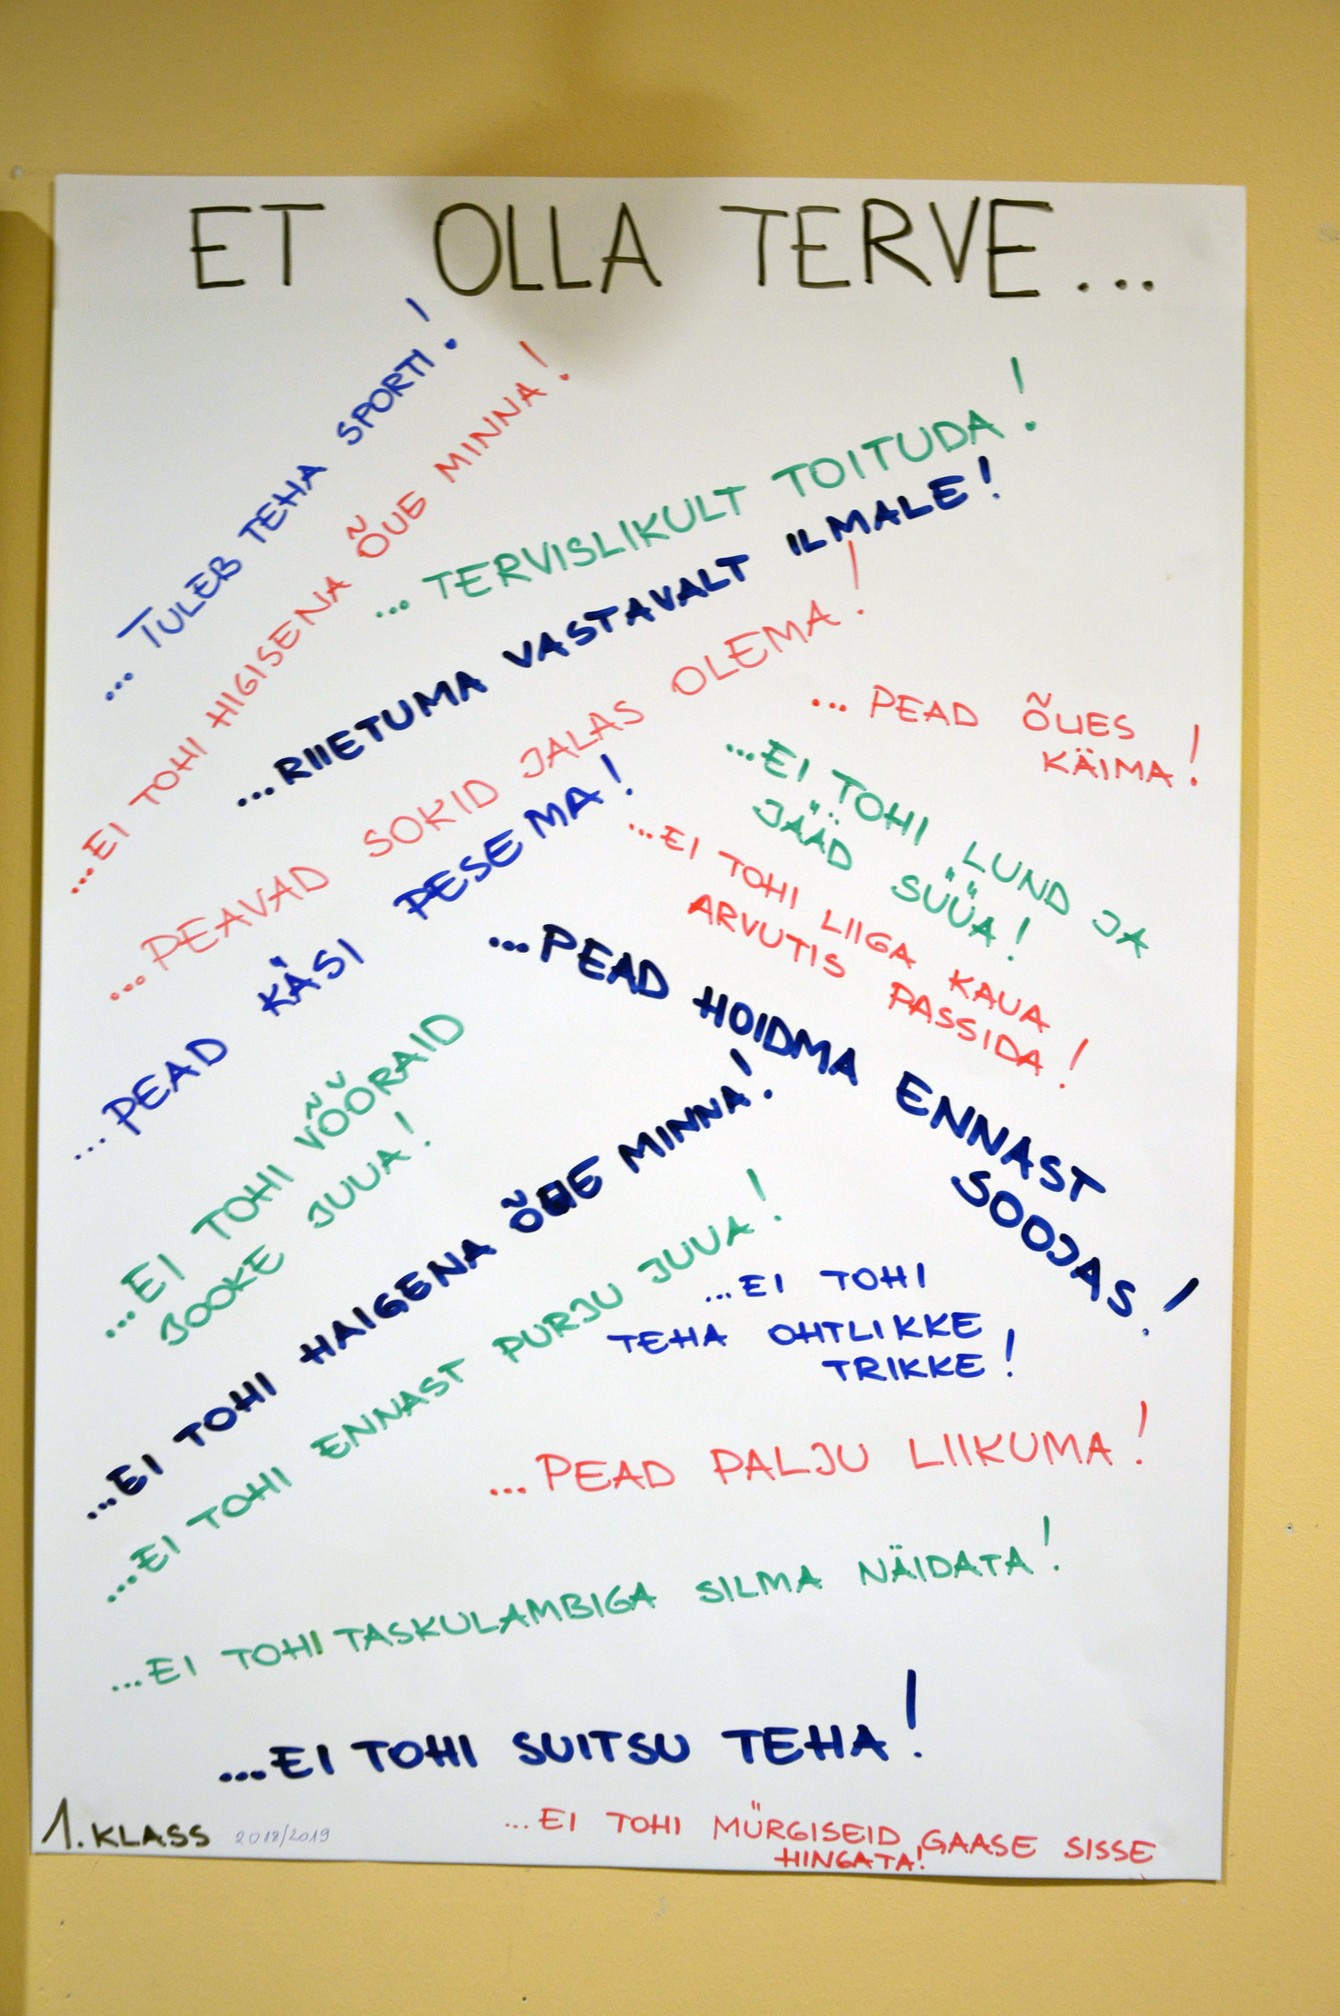 ET OLLA TERVE...
... TULEB TEHA SPORTI!
...EI TOHI HIGISENA ÕUE MINNA!
... TERVISLIKULT TOITUDA!
...RIIETUMA VASTAVALT ILMALE!
...PEAVAD SOKID JALAS OLEMA!
... PEAD ÕUES
KÄIMA!
...EI TOHI LUND JA
JÄÄD SÜÜA!
...EI TOHI LIIGA KAUA
ARVUTIS PASSIDA!
...PEAD KÄSI PESEMA!
...PEAD HOIDMA ENNAST
SOOJAS!
...EI TOHI VÕÕRAID
JOOKE JUUA!
...EI TOHI HAIGENA ÕUE MINNA!
...EI TOHI ENNAST PURJU JUUA!
...EI TOHI
TEHA OHTLIKKE
TRIKKE!
...PEAD PALJU LIIKUMA!
...EI TOHI TASKULAMBIGA SILMA NÄIDATA!
...EI TOHI SUITSU TEHA!
...EI TOHI MÜRGISEID GAASE SISSE
HINGATA!
1. KLASS 2018/2019